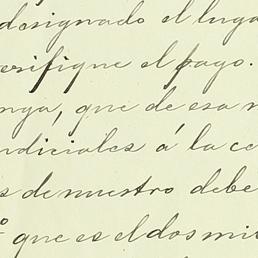 designado el luga
erifique el pago.
nga, que de esa
ndiciales á la ce
s de nuestro debe
º que es el dos mi